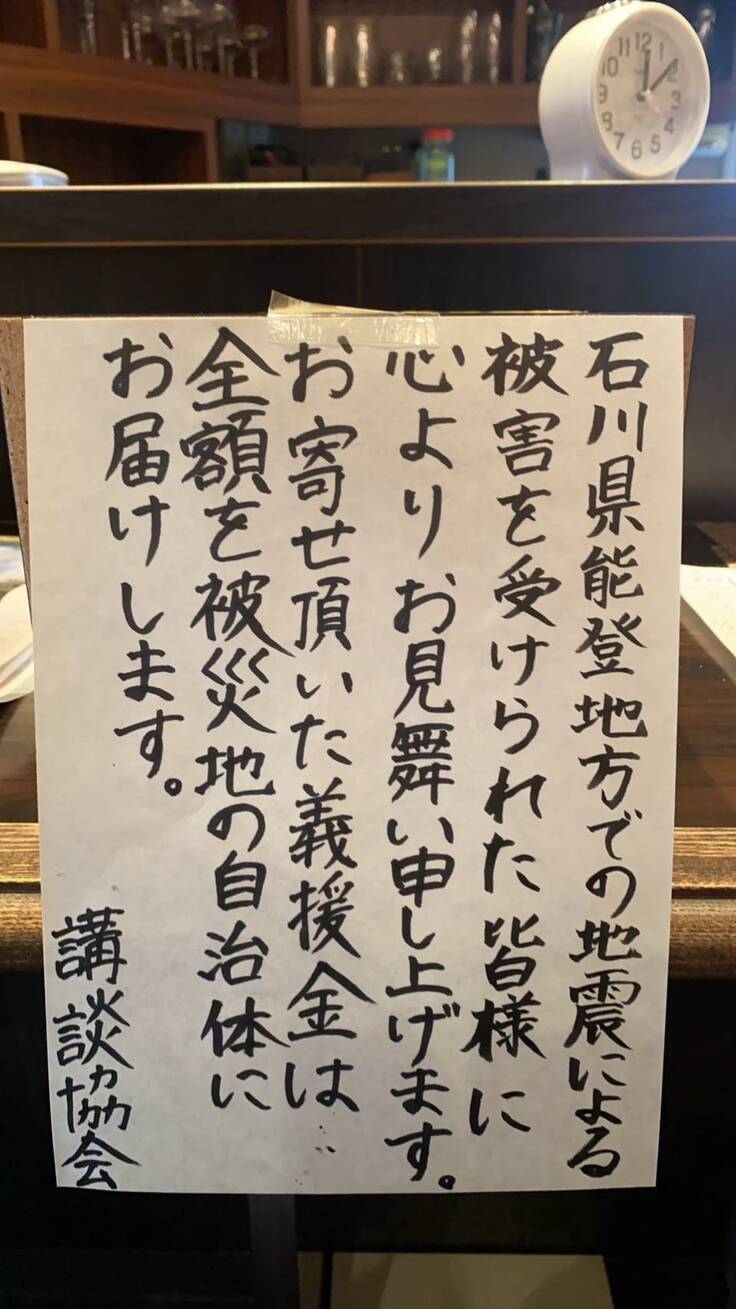 石川県能登地方での地震による
被害を受けられた皆様に
心よりお見舞い申し上げます。
お寄せ頂いた義援金は
全額を被災地の自治体に
お届けします。
講談協会
12
1
2
3
4
5
6
7
8
9
10
11